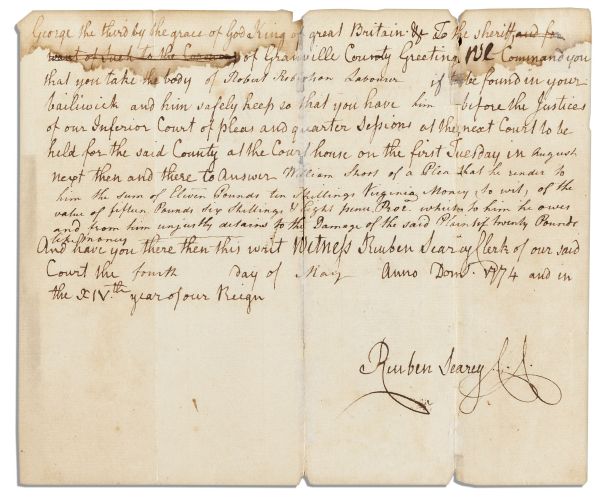 George the third by the grace of God King of great Britain &c To the sheriff and for
want of such to the Coroner of Granville County Greeting We Command you
that you take the body of Robert Labourer if to be found in your
bailiwick and him safely keep so that you have him before the Justices
of our Inferior Court of pleas and quarter sessions at the next Court to be
held for the said County at the Court house on the first Tuesday in August
next then and there to Answer William of a Plea that he render to
him the sum of Eleven Pounds ten Shillings Virginia Money, to wit, of the
value of fifteen Pounds Six Shillings & Eight pence Proc. which to him he owes
and from him unjustly detains to the Damage of the said Plaintef twenty Pounds
like money
And have you there then this writ Witness Reuben Searcy Clerk of our said
Court the fourth day of May Anno Dom. 1774 and in
the XIVth year of our Reign
Reuben Searcy C.C.